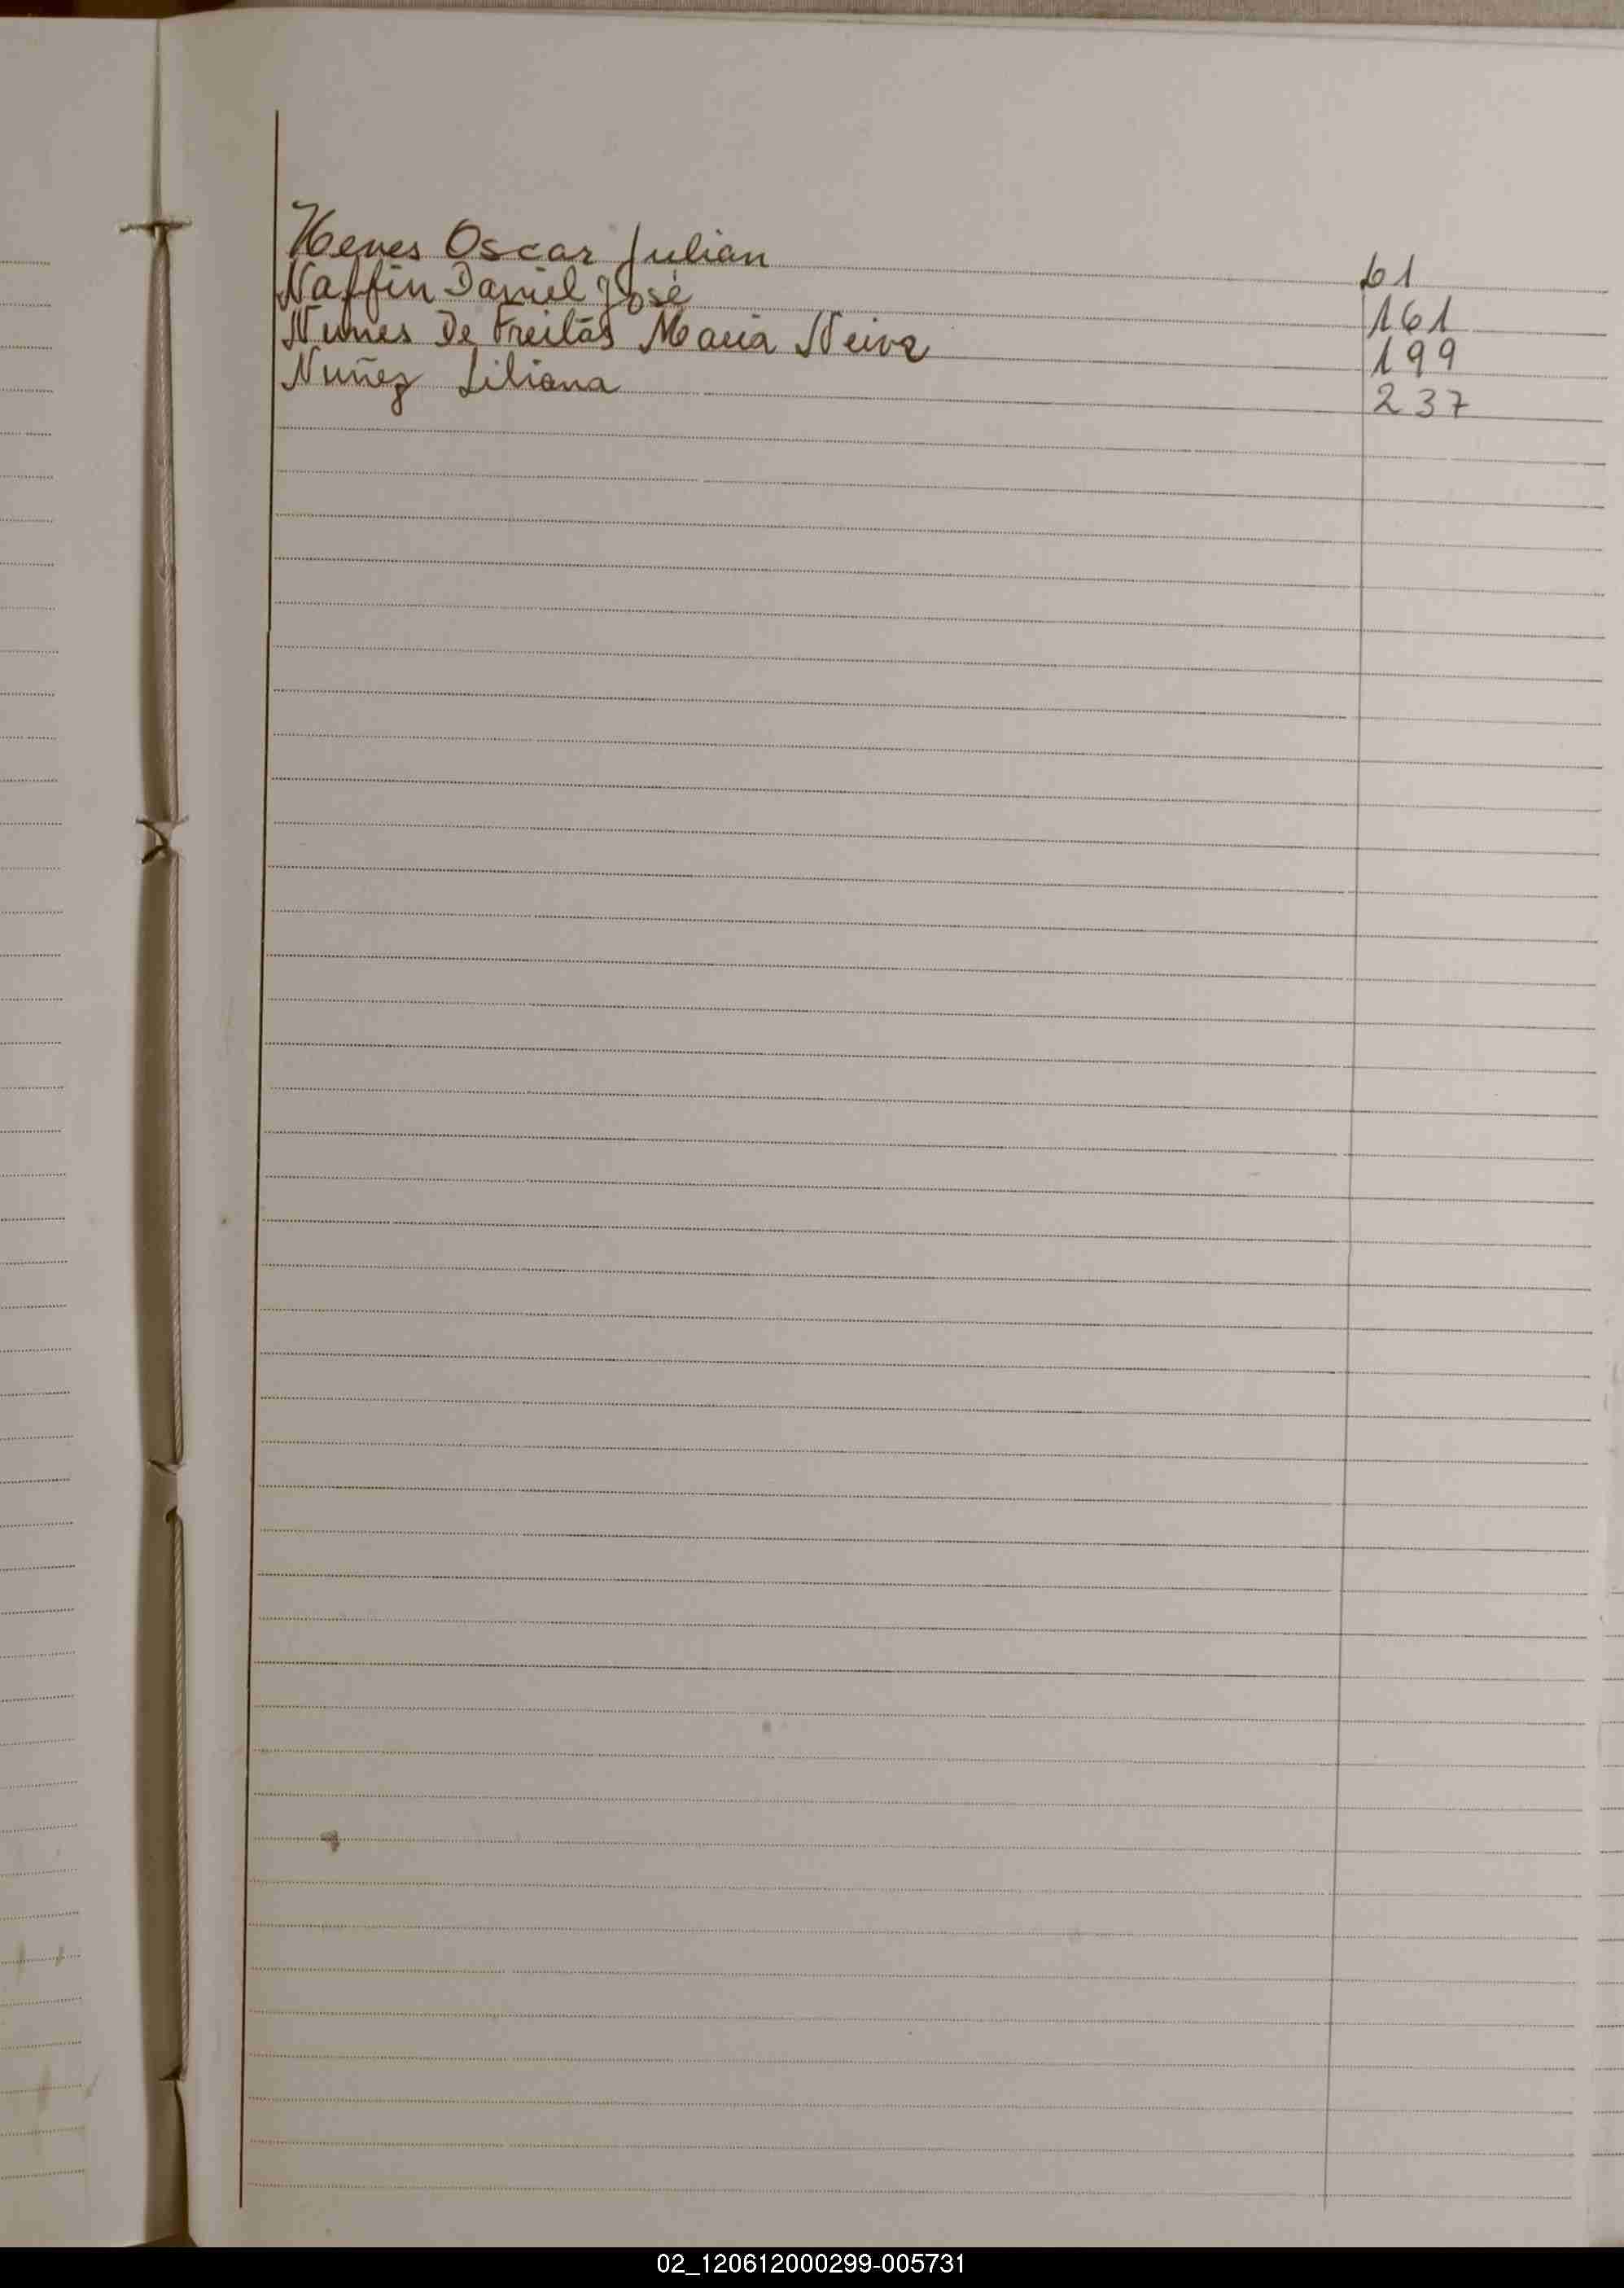 Nenes Oscar Julian 61
Naffin Daniel José 161
Nunes De Freitas Maria Neiva 199
Nuñez Liliana 237
02_120612000299-005731